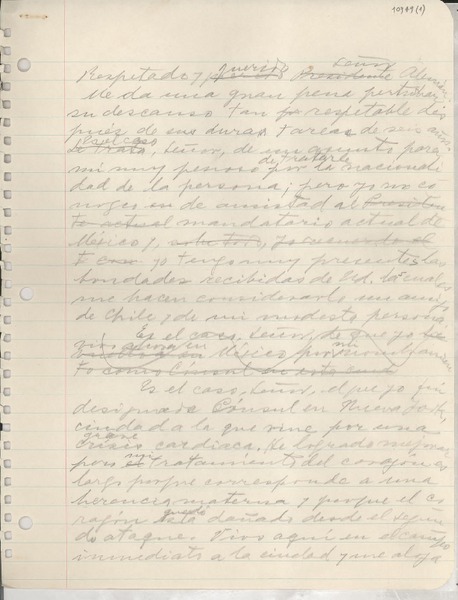 10919 (1)
Respetado y querido Señor Alemán:
Me da una gran pena perturbar
su descanso tan respetable des
pués de sus duras tareas de seis años
Es el caso, Señor, de un asunto para
mí muy penoso de tratarle por la nacionali
dad de la persona; pero yo no co
nozco en de amistad al
mandatario actual de
México y,
yo tengo muy presentes las
bondades recibidas de Ud. las cuales
me hacen considerarlo un amigo
de Chile y de mi modesta persona.
Es el caso, Señor, de que yo
vivo ahora en México por
to como Consul en esta
Es el caso, Señor, el que yo fui
designada Consul en Nueva York,
ciudad a la que vine por una
grave
crisis cardiaca. He logrado mejorar
pero mi tratamiento del corazón es
largo porque corresponde a una
herencia materna y porque el co
razón quedó dañado desde el segun
do ataque. Vivo aquí en el campo
inmediato a la ciudad y me aloja